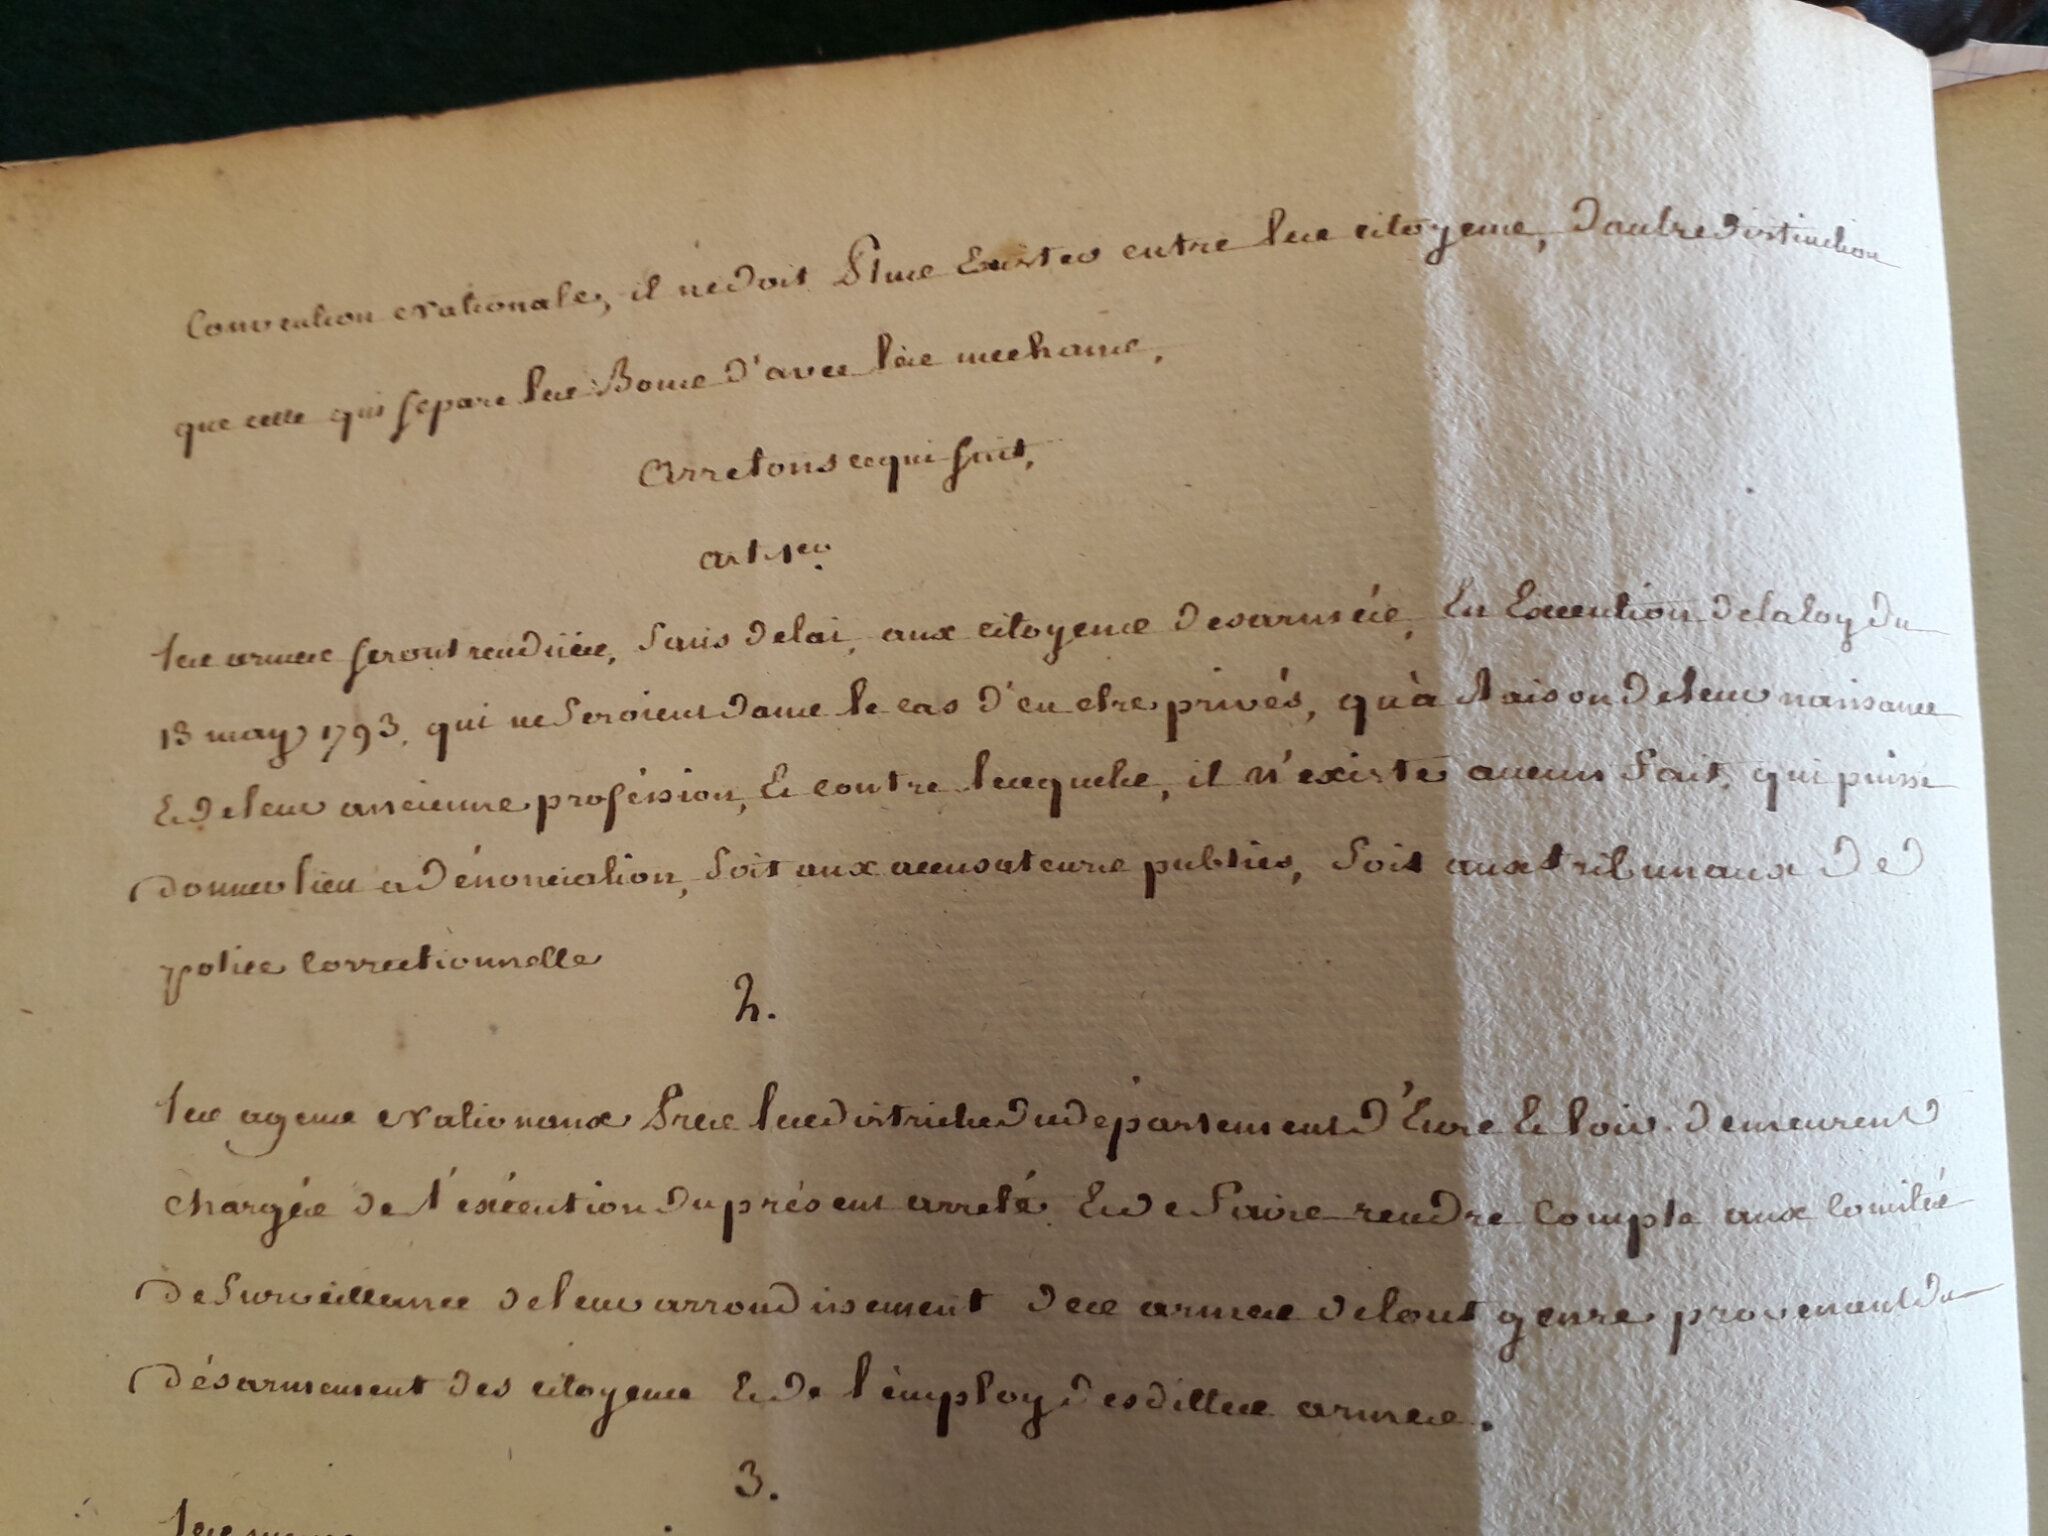 Convention Nationale, il ne doit Plus Exister entre les citoyens, d'autre distinction
que celle qui separe les Bons d'avec les mechans,
Arretons ce qui suit,
art. 1er.
les armes seront rendües, sans delai, aux citoyens desarmés, En Execution de la loy du
13 may 1793. qui ne seroient dans le cas d'en etre privés, qu'à Raison de leur naissance
Et de leur ancienne proféssion, Et contre lesquels, il n'existe aucun fait, qui puisse
donner lieu a dénonciation, soit aux accusateurs publics, soit aux tribunaux de
police Correctionnelle
2.
les agens Nationaux Près les districts du département d'Eure Et loir demeurent
chargés de l'exécution du présent arreté Et de faire rendre Compte aux Comités
de surveillance de leur arrondissement des armes de tout genre provenant du
désarmement des citoyens Et de l'employ des dittes armes.
3.
les